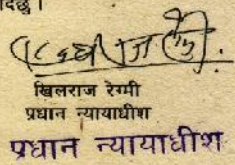 दिछु ।
खिलराज रेग्मी
प्रधान न्यायाधीश
प्रधान न्यायाधीश